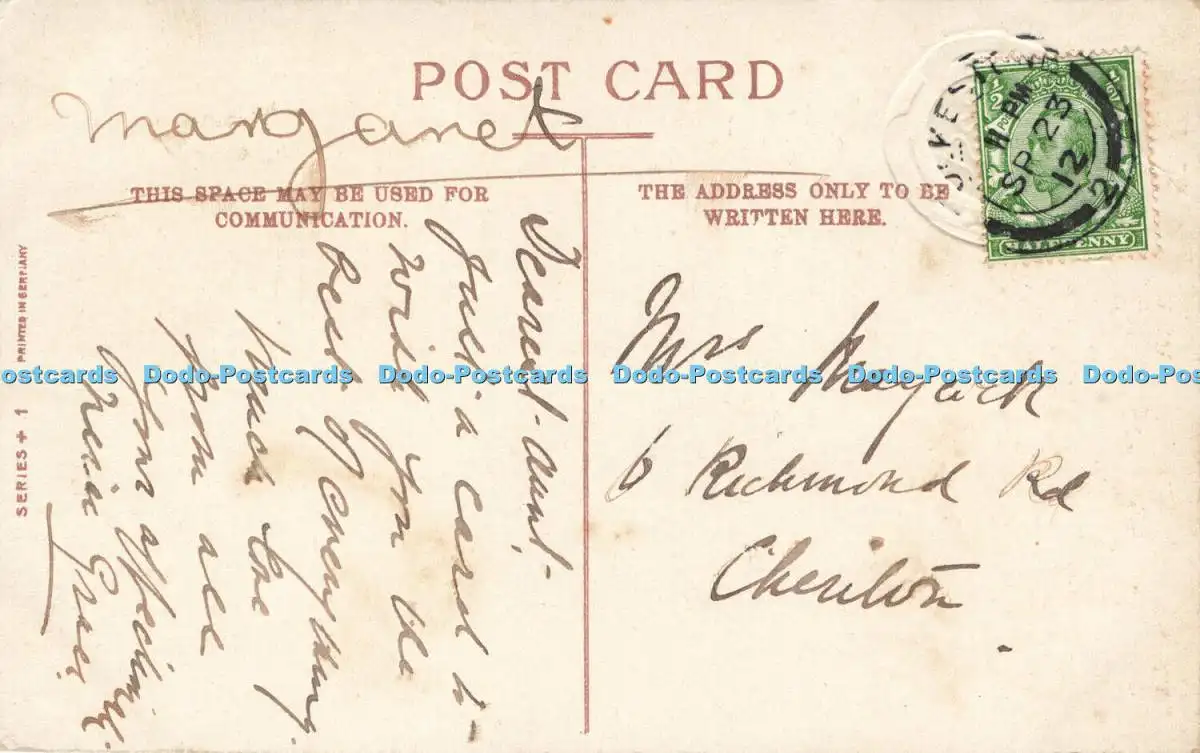 POST CARD
Margaret
THIS SPACE MAY BE USED FOR
COMMUNICATION.
THE ADDRESS ONLY TO BE
WRITTEN HERE.
Dearest Aunt,
Just a card to
wish you the
best of everything
much love
from all
Your affectionate
Neice Grace.
Mrs
6 Richmond Rd
Cheriton
11 PM
SP 23
12
2
HALFPENNY
SERIES + 1
PRINTED IN GERMANY
Dodo-Postcards Dodo-Postcards Dodo-Postcards Dodo-Postcards Dodo-Postcards Dodo-Postcards